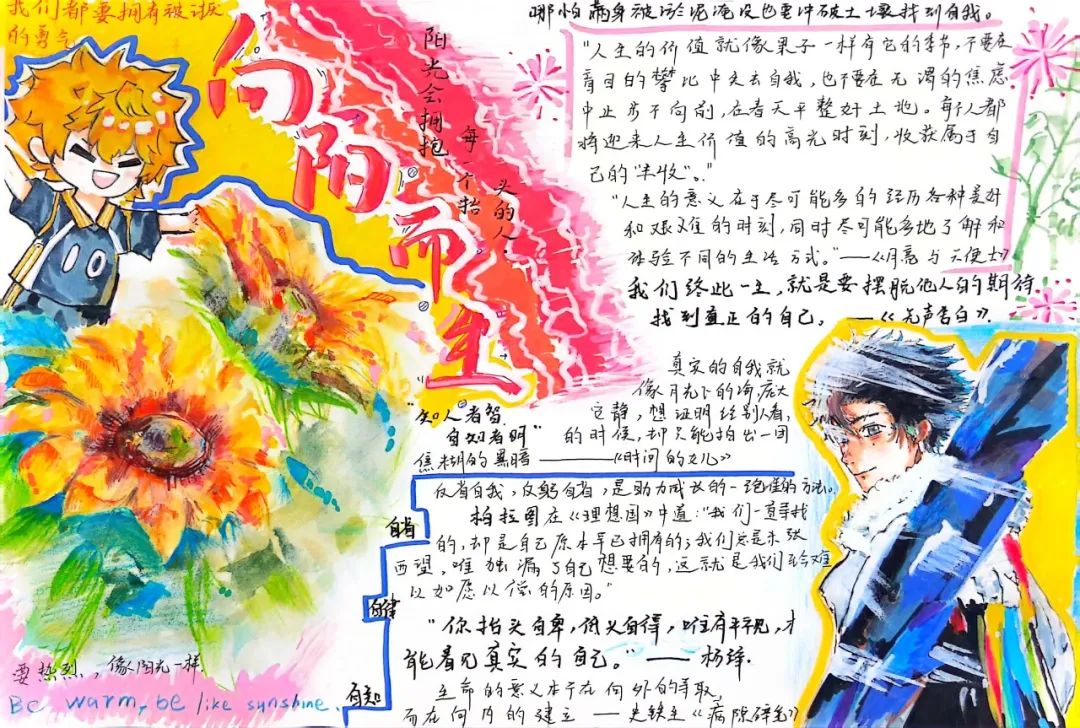 我们都要拥有被讨厌
的勇气
向阳而生
阳光会拥抱
每一个抬
头的人
哪怕满身被淤泥淹没也要冲破土壤找到自我。
"人生的价值就像果子一样有它的季节，不要在
盲目的攀比中失去自我，也不要在无谓的焦虑
中止步不向前，在春天平整好土地。每个人都
将迎来人生价值的高光时刻，收获属于自
己的"丰收"。"
"人生的意义在于尽可能多的经历各种美好
和艰难的时刻，同时尽可能多地了解和
体验不同的生活方式。"——《月亮与六便士》
我们终此一生，就是要摆脱他人的期待
找到真正的自己。——《无声告白》
真实的自我就
像月光下的海庞大
宁静，想证明给别人看，
的时候，却只能拍出一团
焦糊的黑暗————《时间的女儿》
"知人者智
自知者明"
反省自我，反躬自省，是助力成长的一
柏拉图在《理想国》中道："我们一直寻找
的，却是自己原本早已拥有的；我们总是东张
西望，唯独漏了自己想要的，这就是我们至今难
以如愿以偿的原因。"
"你抬头自卑，低头自得，唯有平视，才
能看见真实的自己。"——杨绛.
生命的意义本不在向外的寻取，
而在向内的建立——史铁生《病隙碎笔》
自省
自律
自知
要热烈，像阳光一样.
Be warm, be like sunshine.
10